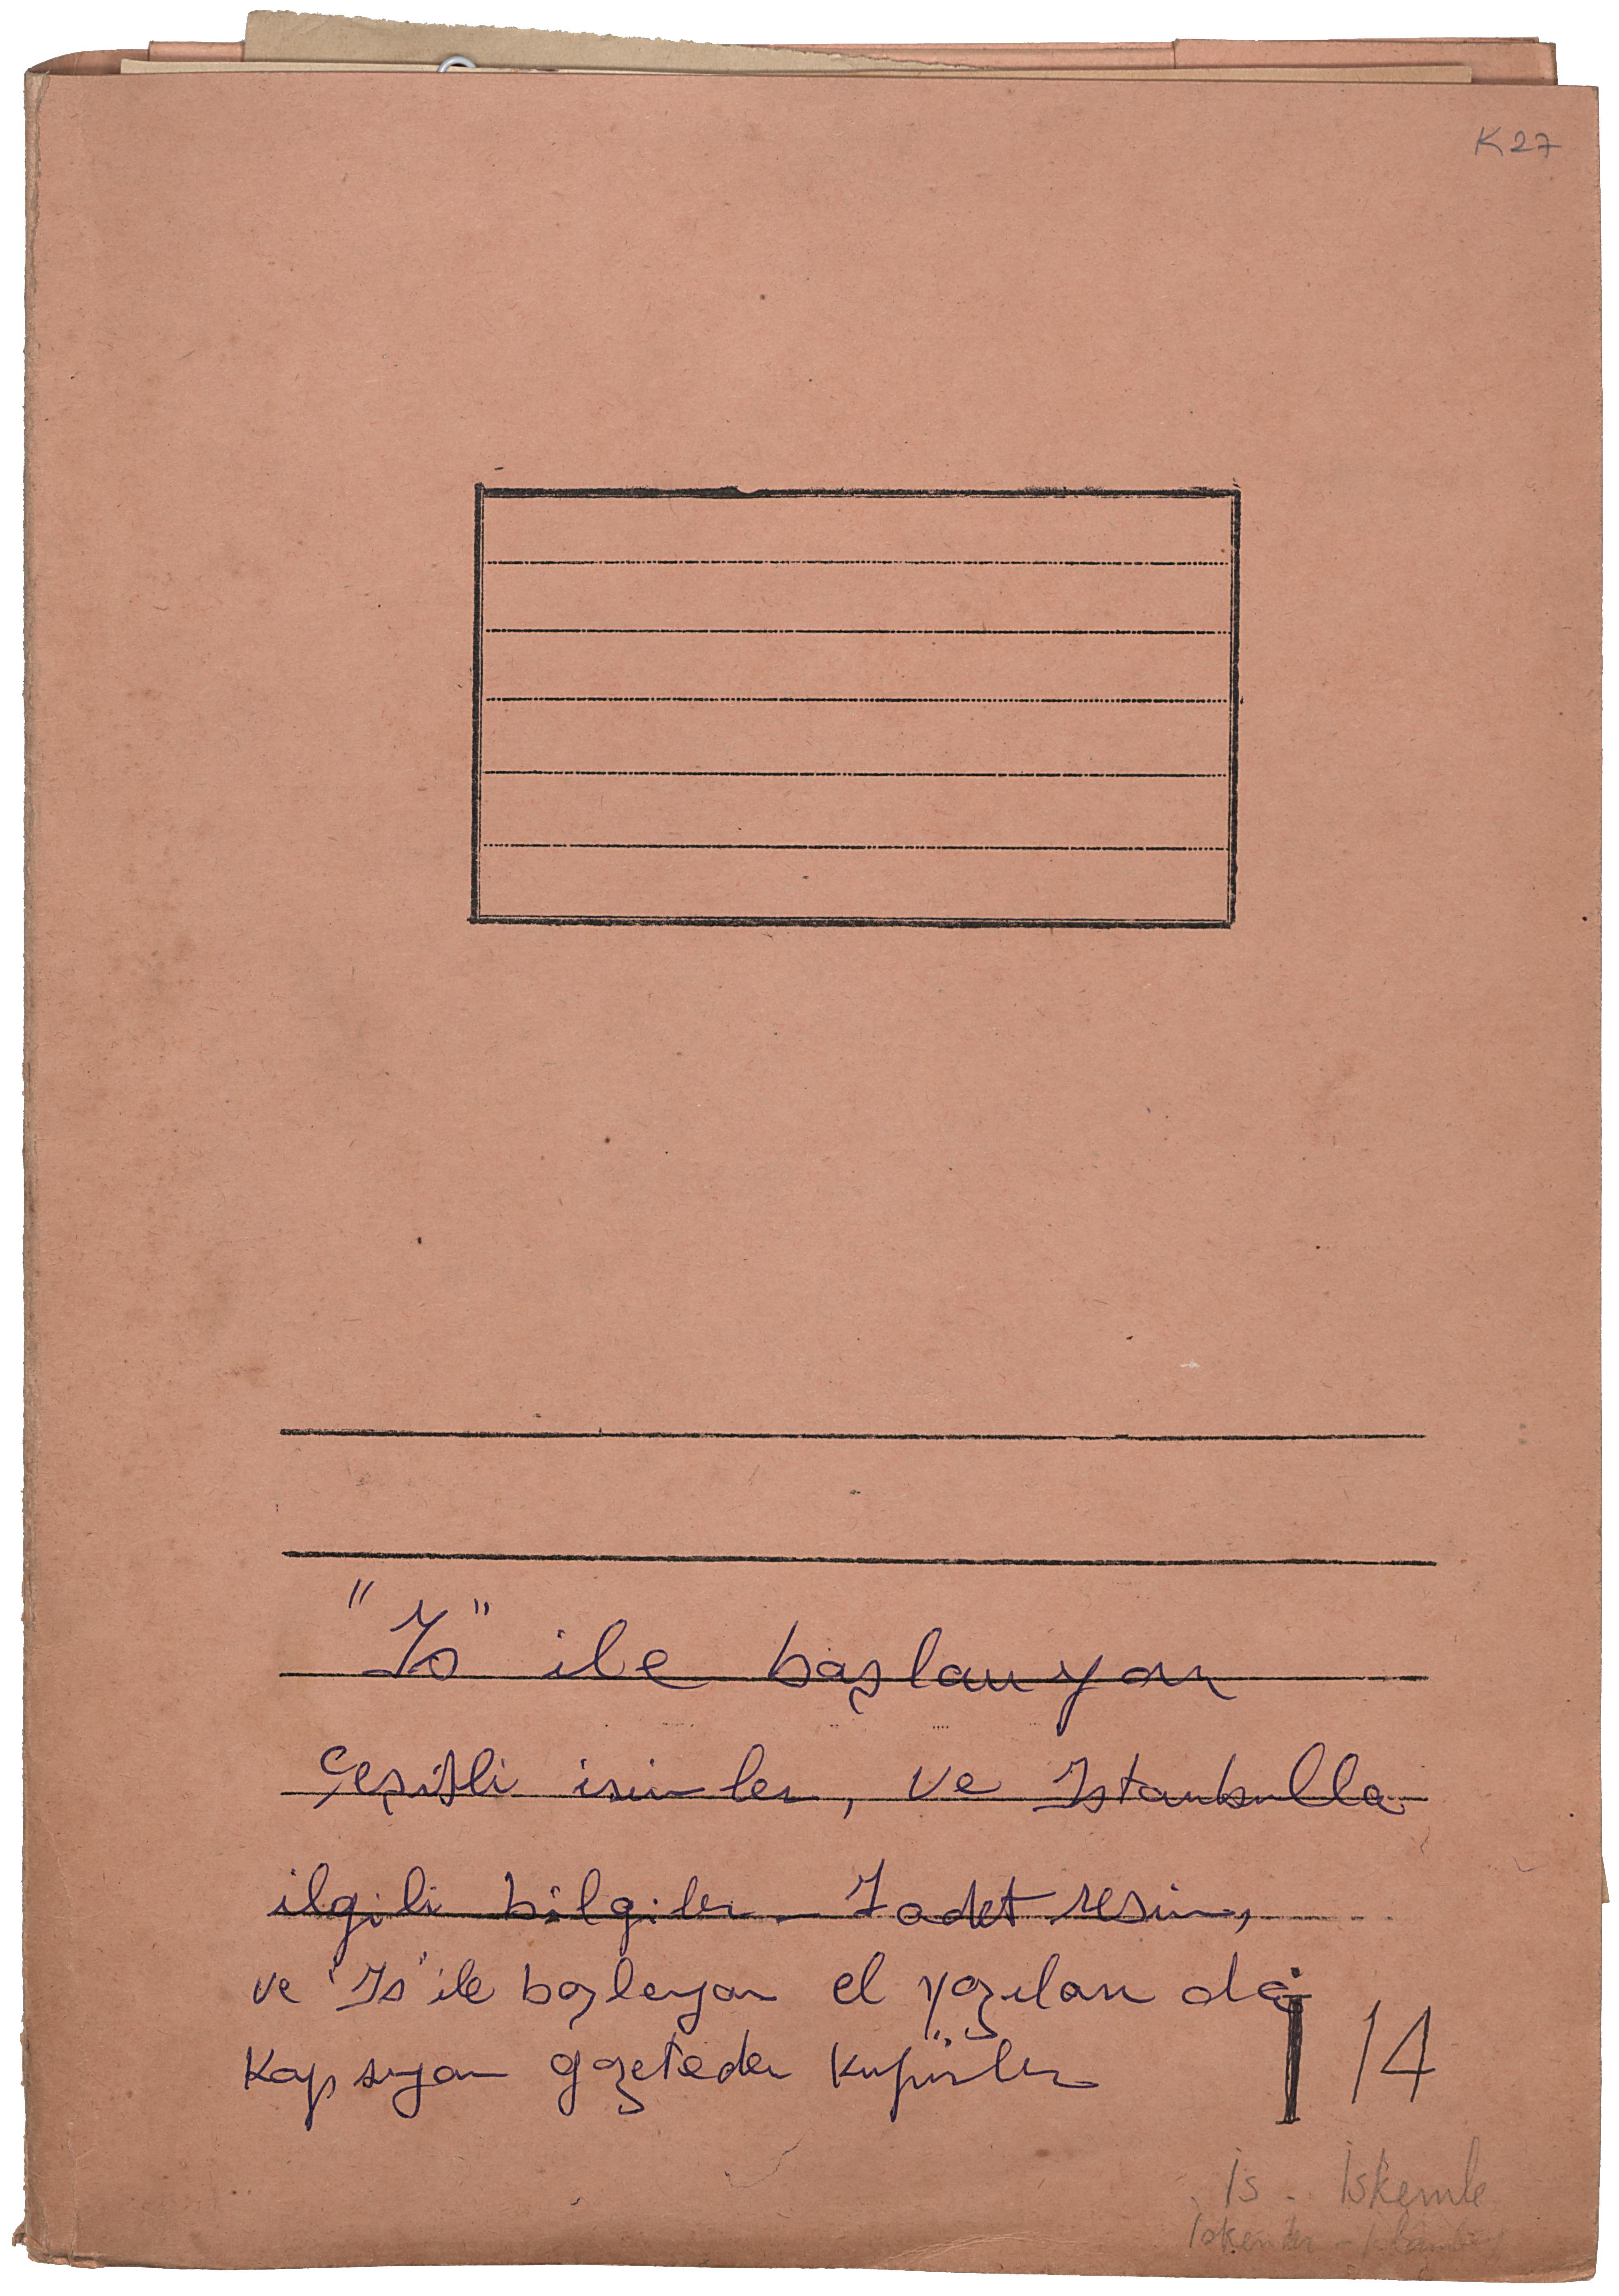 K27
"Is" ile başlanyan
Çeşitli isimler, ve Istanbulla
ilgili bilgiler - 1 adet resim,
ve "Is" ile başlayan el yazıları da
Kapsıyan gazeteden küpürler
İ 14
İs - İskemle
İskender -